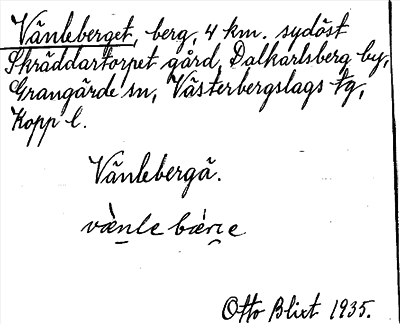 Vänleberget, berg, 4 km. sydöst
Skräddartorpet gård, Dalkarlsberg by,
Grangärde sn, Västerbergslags tg,
Kopp. l.
Vänlebergä.
Otto Blixt 1935.